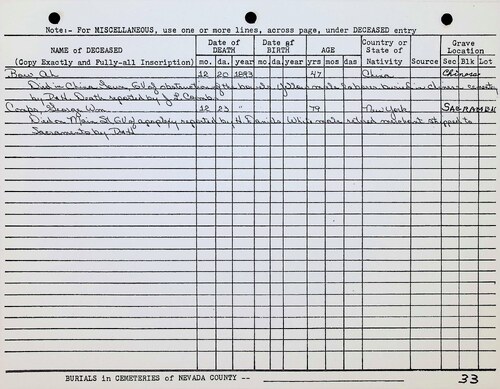 Note:- For MISCELLANEOUS, use one or more lines, across page, under DECEASED entry
NAME of DECEASED (Copy Exactly and Fully-all Inscription) Date of DEATH mo. da. year Date of BIRTH mo. da. year AGE yrs mos das Country or State of Nativity Source Grave Location Sec Blk Lot
Bow Ah 12 20 1893 47 China Chinese
Died in China Town, GV of obstruction of the bowels. Yellow male laborer buried in Chinese cemetery
by D&H. Death reported by J.
George Wm. 12 23 " 79 New York SACRAMEN
Died on Main St GV of apoplexy reported by H Daniels White male retired shipped to
Sacramento by D&H
BURIALS in CEMETERIES of NEVADA COUNTY -- 33